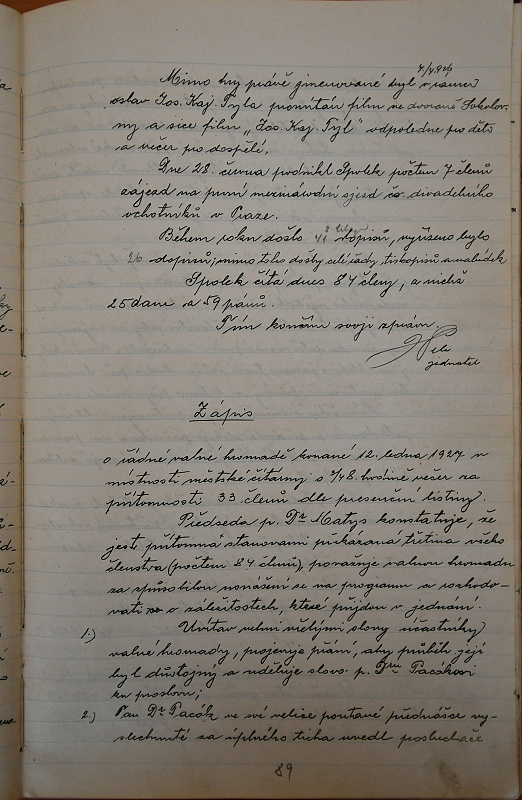 7/V.926
Mimo hry právě jmenované byl v rámci
oslav Jos. Kaj. Tyla promítán film ve dvoraně Sokolov-
ny a sice film „Jos. Kaj. Tyl" odpoledne pro děti
a večer pro dospělé.
Dne 28. června podnikl Spolek počtem 7 členů
zájezd na první mezinárodní sjezd čs. divadelního
ochotníků v Praze.
Během roku došlo 41 dopisů, vyřízeno bylo
26 dopisů; mimo toho došly celé řady tiskopisů a nabídek
Spolek čítá dnes 84 členy, a nichž
25 dam a 59 pánů.
Tím končím svoji zprávu.
jednatel
Zápis
o řádné valné hromadě konané 12. ledna 1927 v
místnosti městské čítárny o 1/48. hodině večer za
přítomnosti 33 členů dle presenční listiny.
Předseda p. Dr Matys konstatuje, že
jest přítomná stanovami přikázaná třetina všeho
členstva (počtem 84 členů), považuje valnou hromadu
za způsobilou usnášení se na programu a rozhodo-
vati o záležitostech, které přijdou v jednání.
1.) Uvítav velmi vřelými slovy účastníky
valné hromady, projevuje přání, aby průběh její
byl důstojný a uděluje slovo p. Dru Pacákovi
ku proslovu;
2.) Pan Dr Pacák ve své velice poutavé přednášce vy-
slechnuté za úplného ticha uvedl posluchače
89